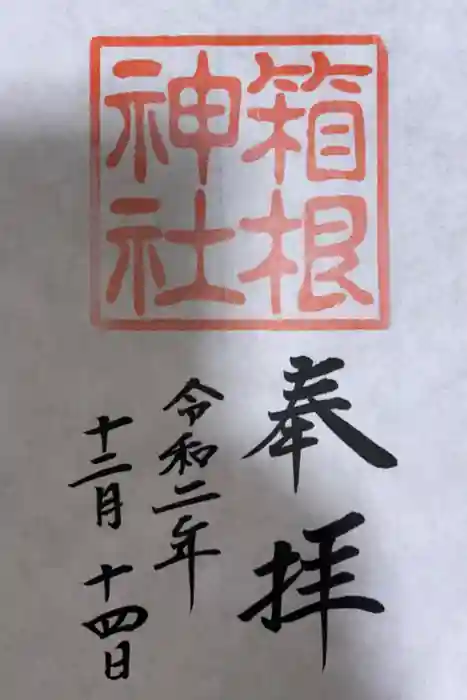 箱根
神社
奉拝
令和二年
十二月十四日